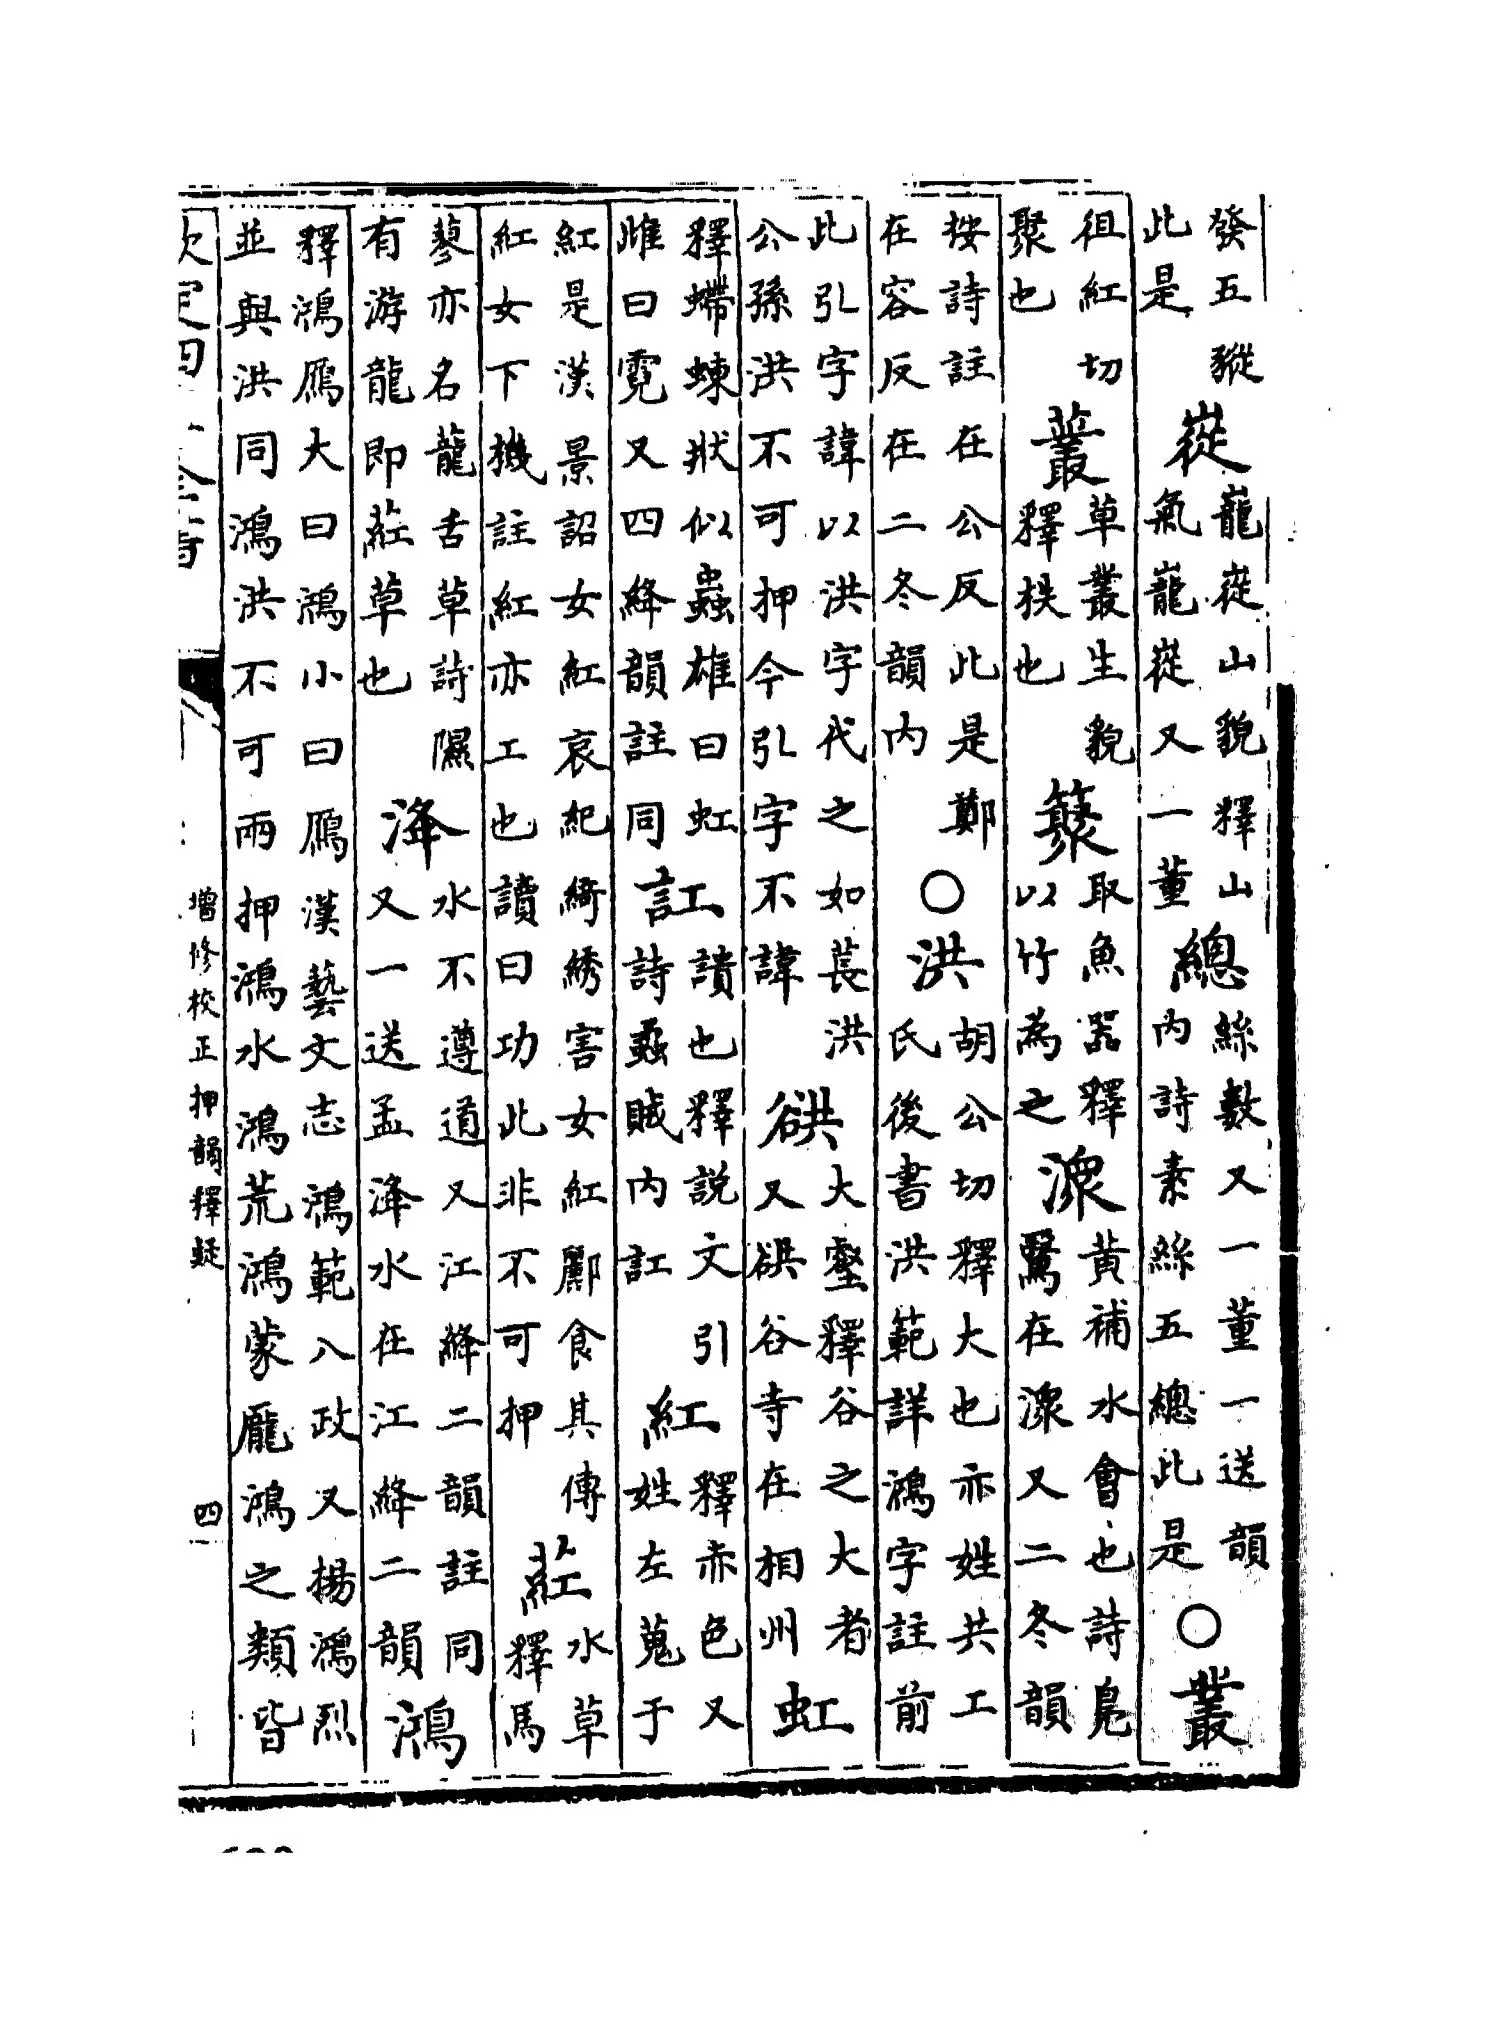 發五豵
此是
嵸
巃嵸山貌釋山
氣巃嵸又一董
總
絲數又一董一送韻
內詩素絲五總此是
○叢
徂紅切
聚也
叢
草叢生貌
釋栚也
取魚器釋
以竹為之
潨
黄補水會也詩鳬
鷖在潨又二冬韻
按詩註在公反此是鄭
在容反在二冬韻内
○洪
胡公切釋大也亦姓共工
氏後書洪範詳鴻字註前
此引字諱以洪字代之如萇洪
公孫洪不可押今引字不諱
谼
大壑釋谷之大者
又谼谷寺在相州
虹
釋螮蝀狀似蟲雄曰虹
雌曰霓又四絳韻註同
訌
也釋説文引
詩蟊賊内訌
紅
釋赤色又
姓左蒐于
紅是漢景詔女紅哀紀綺綉害女紅酈食其傳
紅女下機註紅亦工也讀曰功此非不可押
葒
水草
釋馬
蓼亦名龍舌草詩隰
有游龍即葒草也
洚
水不遵道又江絳二韻註同
又一送孟洚水在江絳二韻
鴻
釋鴻鴈大曰鴻小曰鴈漢藝文志鴻範八政又揚鴻烈
並與洪同鴻洪不可兩押鴻水鴻荒鴻蒙龎鴻之類皆
欽定四庫全書
增修校正押韻釋疑
四